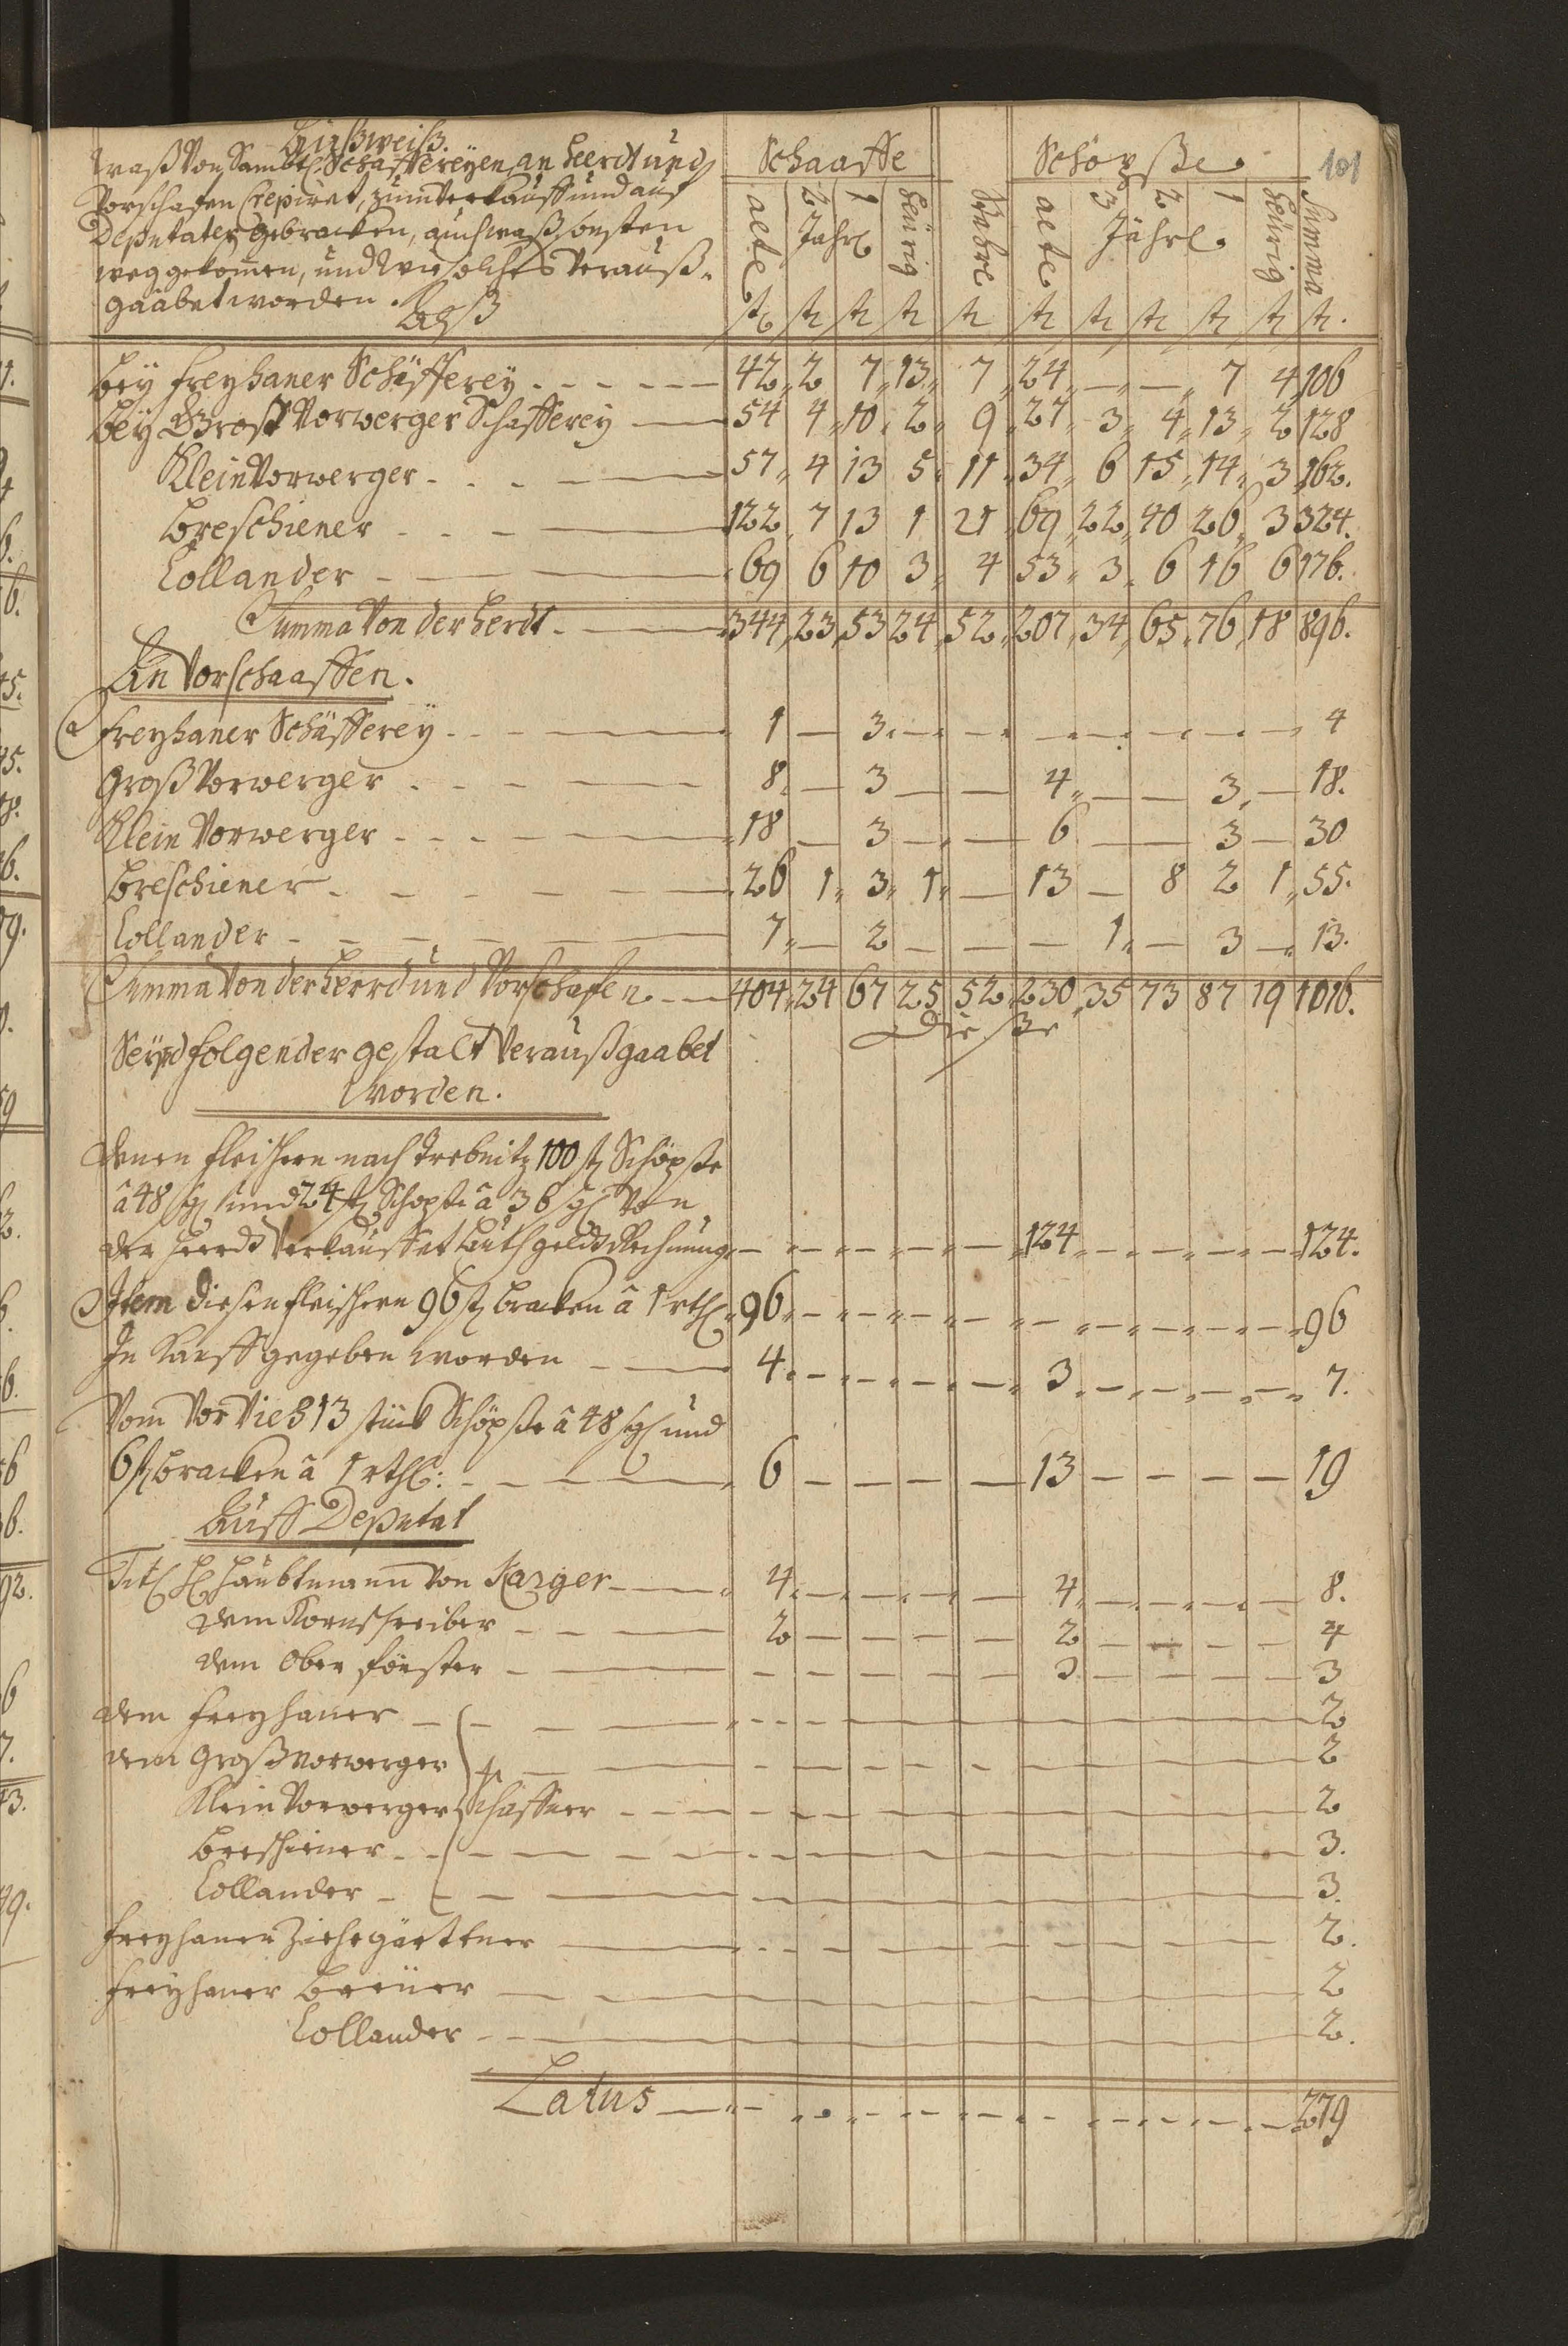 101
Außweiß.
Waß Von Sambtl. Schäffereyen an Heerdt und
Vorschafen Crepiret, zum Verkauff und auf
Deputaten gebracken, auch waß sonsten
weggekommen, und wie solches Verauß-
gaabet worden. Alß
Schaaffe Schöpße
alte 2 1 Jährl. heürig alte 3 2 1 Jährl. heürig Summa
st st st st st st st st st st st.
Bey Freyhaner Schäfferey 42 2 7 13 7 24 — — 7 4 106
Bey Groß Vorwerger Schäfferey 54 4 10 2 9 27 3 4 13 2 128
Klein Vorwerger 57 4 13 5 11 34 6 15 14 3 162.
Breschiener 122 7 13 1 21 69 22 40 26 3 324.
Collander 69 6 10 3 4 53 3 6 16 6 176.
Summa Von der Herdt 344 23 53 24 52 207 34 65 76 18 896.
An Vorschaaffen.
Freyhaner Schäfferey 1 — 3 — — — — — — — 4
Groß Vorwerger 8 — 3 — — 4 — — 3 — 18.
Klein Vorwerger 18 — 3 — — 6 — — 3 — 30
Breschiener 26 1 3 1 — 13 — 8 2 1 55.
Collander 7 — 2 — — — 1 — 3 — 13.
Summa Von der Heerd und Vorschafen 404 24 67 25 52 230 35 73 87 19 1016.
Dieße
Seynd folgender gestalt Veraußgaabet
worden.
Denen Fleischern nach Trebnitz 100 st Schöpße
â 48 sgl und 24 st Schöpße â 36 sgl Von
der Heerdt Verkauffet Lauth geldt Rechnung — — — — — 124 — — — — 124.
Item diesen Fleischern 96 st bracken â 1 rthl 96 — — — — — — — — — 96
In Kauff gegeben worden 4 — — — — 3 — — — — 7.
Vom Vor Vieh 13 stück Schöpße â 48 sgl und
6 st bracken â 1 rthl: 6 — — — — 13 — — — — 19
Auff Deputat
Titl H Haubtmann von Karger 4 — — — — 4 — — — — 8.
dem Kornschreiber 2 — — — — 2 — — — — 4
dem Ober förster — — — — — 3 — — — — 3
dem Freyhaner 2
dem Großvorwerger 2
Klein Vorwerger Schaffer 2
Breschiener 3.
Collander 3.
Freyhaner Ziehrgärttner 2.
Freyhaner Breüer 2
Collander 2.
Latus 279